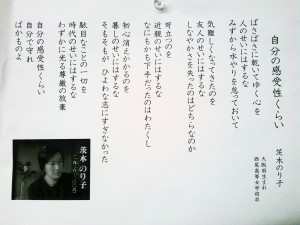 自分の感受性くらい
茨木のり子
大阪府生まれ
西尾高等女学校卒
ぱさぱさに乾いてゆく心を
人のせいにはするな
みずから水やりを怠っておいて
気難しくなってきたのを
友人のせいにはするな
しなやかさを失ったのはどちらなのか
苛立つのを
近親のせいにはするな
なにもかも下手だったのはわたくし
初心消えかかるのを
暮しのせいにはするな
そもそもが ひよわな志にすぎなかった
駄目なことの一切を
時代のせいにはするな
わずかに光る尊厳の放棄
自分の感受性くらい
自分で守れ
ばかものよ
茨木のり子